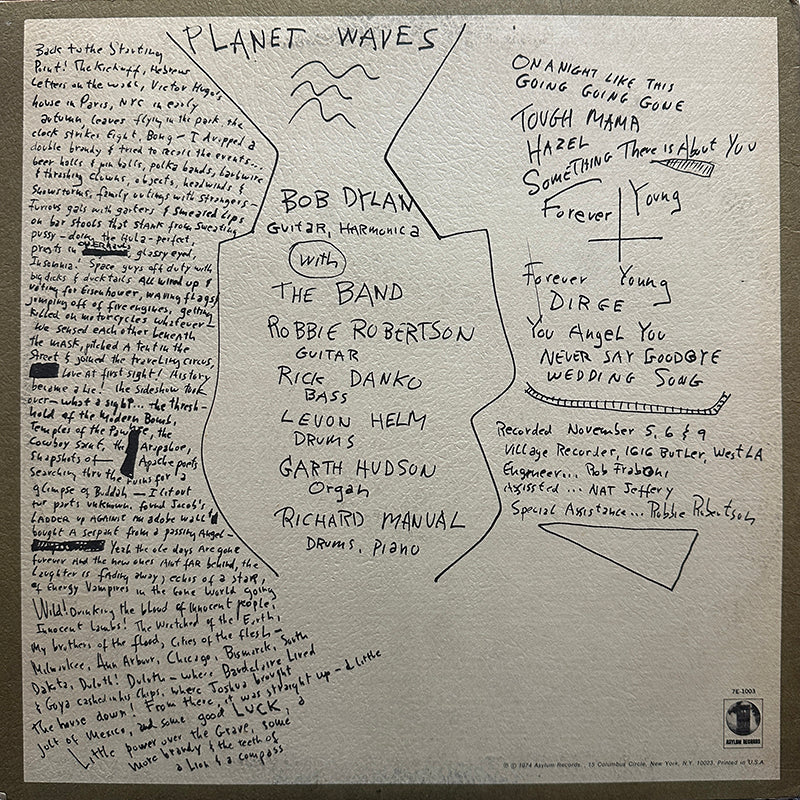 PLANET WAVES
Back to the Starting
Point! The Kickoff, Hebrew
letters on the walls, Victor Hugo's
house in Paris, NYC in early
autumn, leaves flying in the park, the
clock strikes Eight, Bong — I dripped a
double brandy & tried to recall the events...
beer halls & pin balls, polka bands, barbwire
& thrashing clowns, objects, headwinds &
Snowstorms, family outings with strangers —
Furious gals with garters & smeared lips
on bar stools that stank from sweating
pussy — doing the Hula — perfect,
prests in OVERHAULS, glassy eyed,
Insomnia! Space guys off duty with
big dicks & ducktails All wired up &
voting for Eisenhower, waving flags &
jumping off of fire engines, getting
killed on motorcycles whatever —
We sensed each other beneath
the MASK, pitched A tent in the
Street & joined the traveling circus,
Love At first sight! History
became a Lie! the sideshow took
over — what a sight... the thresh-
hold of the Modern Bomb,
Temples of the Pawnee, the
Cowboy Saint, the Arapahoe,
snapshots of — Apache poets
searching thru the ruins for a
glimpse of Buddah — I lit out
for parts unknown, found Jacob's
LADDER up AGAINST An adobe wall &
bought A serpant from a passing Angel —
Yeah the ole days Are gone
forever And the new ones Aint fAR behind, the
Laughter is fAding away, echos of a staR,
of Energy Vampires in the Gone World going
Wild! Drinking the blood of innocent people,
Innocent lambs! The Wretched of the Earth,
My brothers of the flood, Cities of the flesh —
Milwaukee, Ann Arbour, Chicago, Bismarck, South
Dakita, Duluth! Duluth — where Baudelaire Lived
& Goya cashed in his Chips, where Joshua brought
The house down! From there, it was straight up — a little
jolt of Mexico, and some good LUCK, a
Little power over the Grave, some
more brandy & the teeth of
a lion & a compass
BOB DYLAN
Guitar, HARMONICA
with
THE BAND
ROBBIE ROBERTSON
GUITAR
RICK DANKO
BASS
LEVON HELM
DRUMS
GARTH HUDSON
Organ
RICHARD MANUAL
DRUMS, Piano
ON A NIGHT LIKE THIS
GOING GOING GONE
TOUGH MAMA
HAZEL
SOMETHING There is About You
Forever Young
Forever Young
DIRGE
You Angel You
NEVER SAY GOODBYE
WEDDING SONG
Recorded November 5, 6 & 9
Village Recorder, 1616 BUTLER, West LA
Engineer... Rob Fraboni
Assisted... NAT Jeffery
Special Assistance... Robbie Robertson
7E-1003
ASYLUM RECORDS
℗ © 1974 Asylum Records, 15 Columbus Circle, New York, N.Y. 10023. Printed in U.S.A.